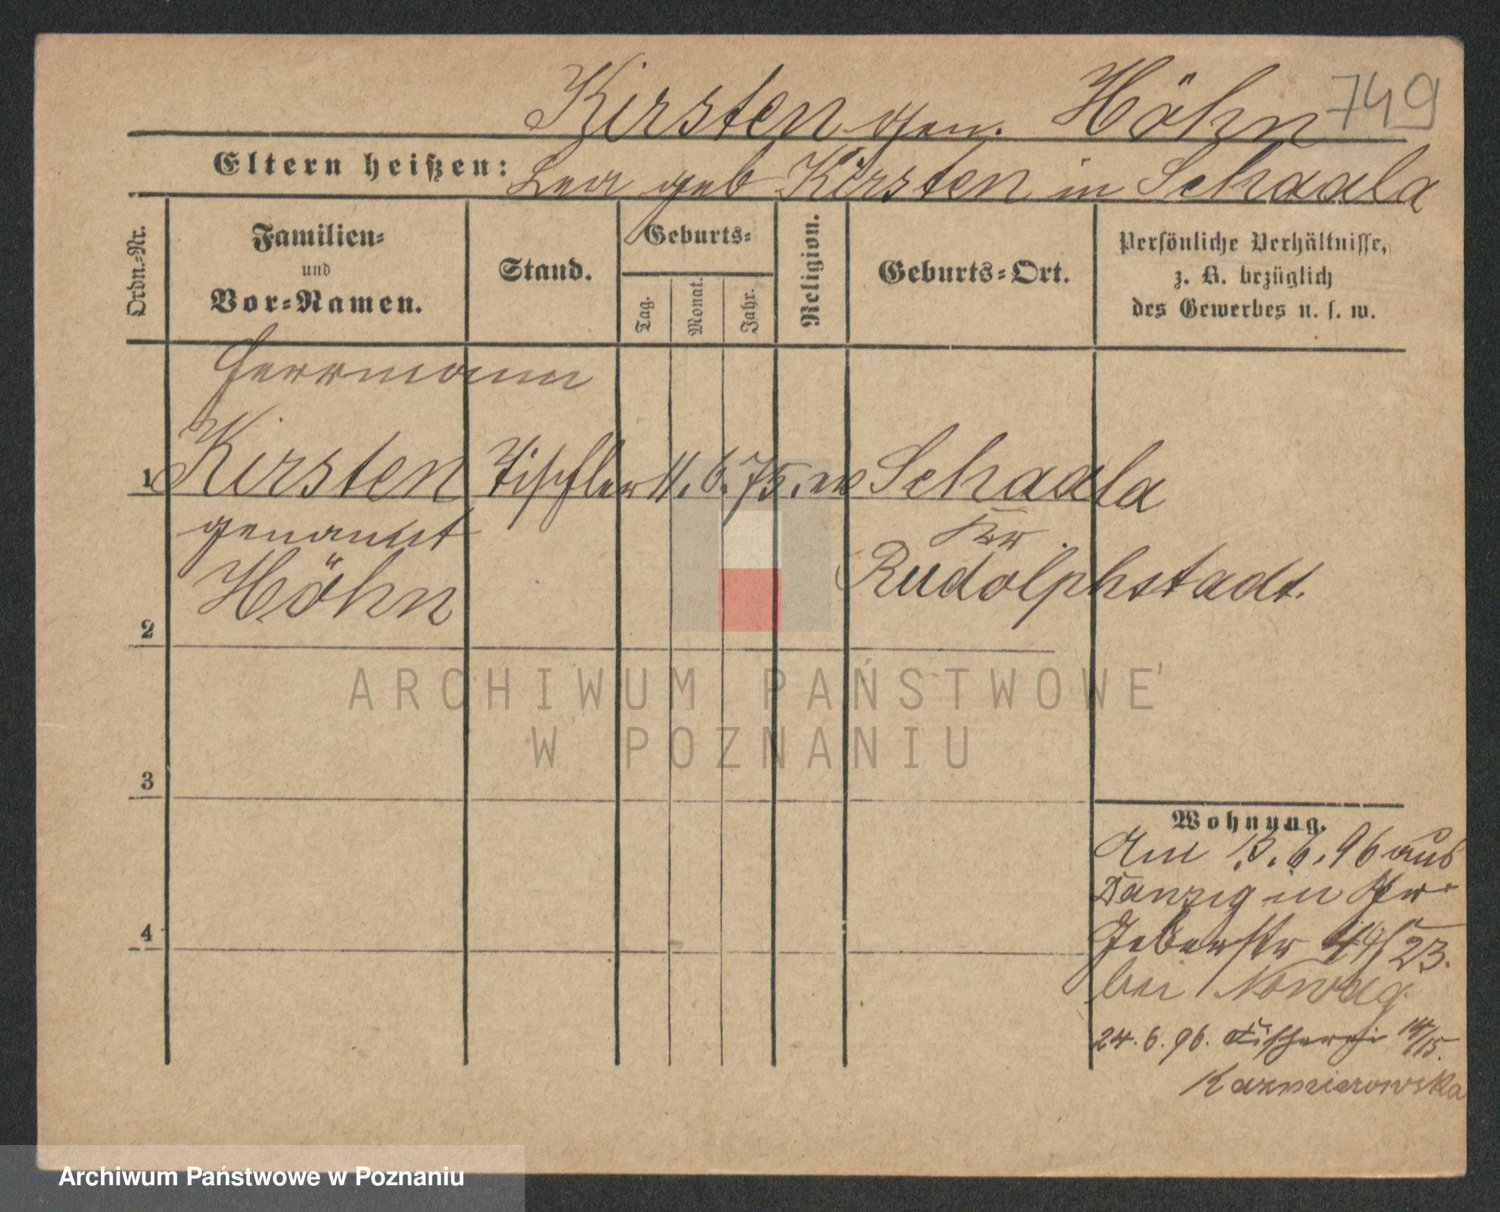 Kirsten gen. Höhn 749
Eltern heißen: Lea geb Kirsten in Schaala
Ordn.-Nr.
Familien-
und
Vor-Namen.
Stand.
Geburts-
Tag.
Monat.
Jahr.
Religion.
Geburts-Ort.
Persönliche Verhältnisse,
z. B. bezüglich
des Gewerbes u. s. w.
Herrmann
1 Kirsten Tischler 11. 6. 75. ev Schaala
genannt Kr
Höhn Rudolphstadt.
2
3
4
Wohnung.
Am 13. 6. 96 aus
Danzig in
23.
bei Nowag
24. 6. 96. Fischerei 14/15.
Kazmierowska
ARCHIWUM PAŃSTWOWE
W POZNANIU
Archiwum Państwowe w Poznaniu